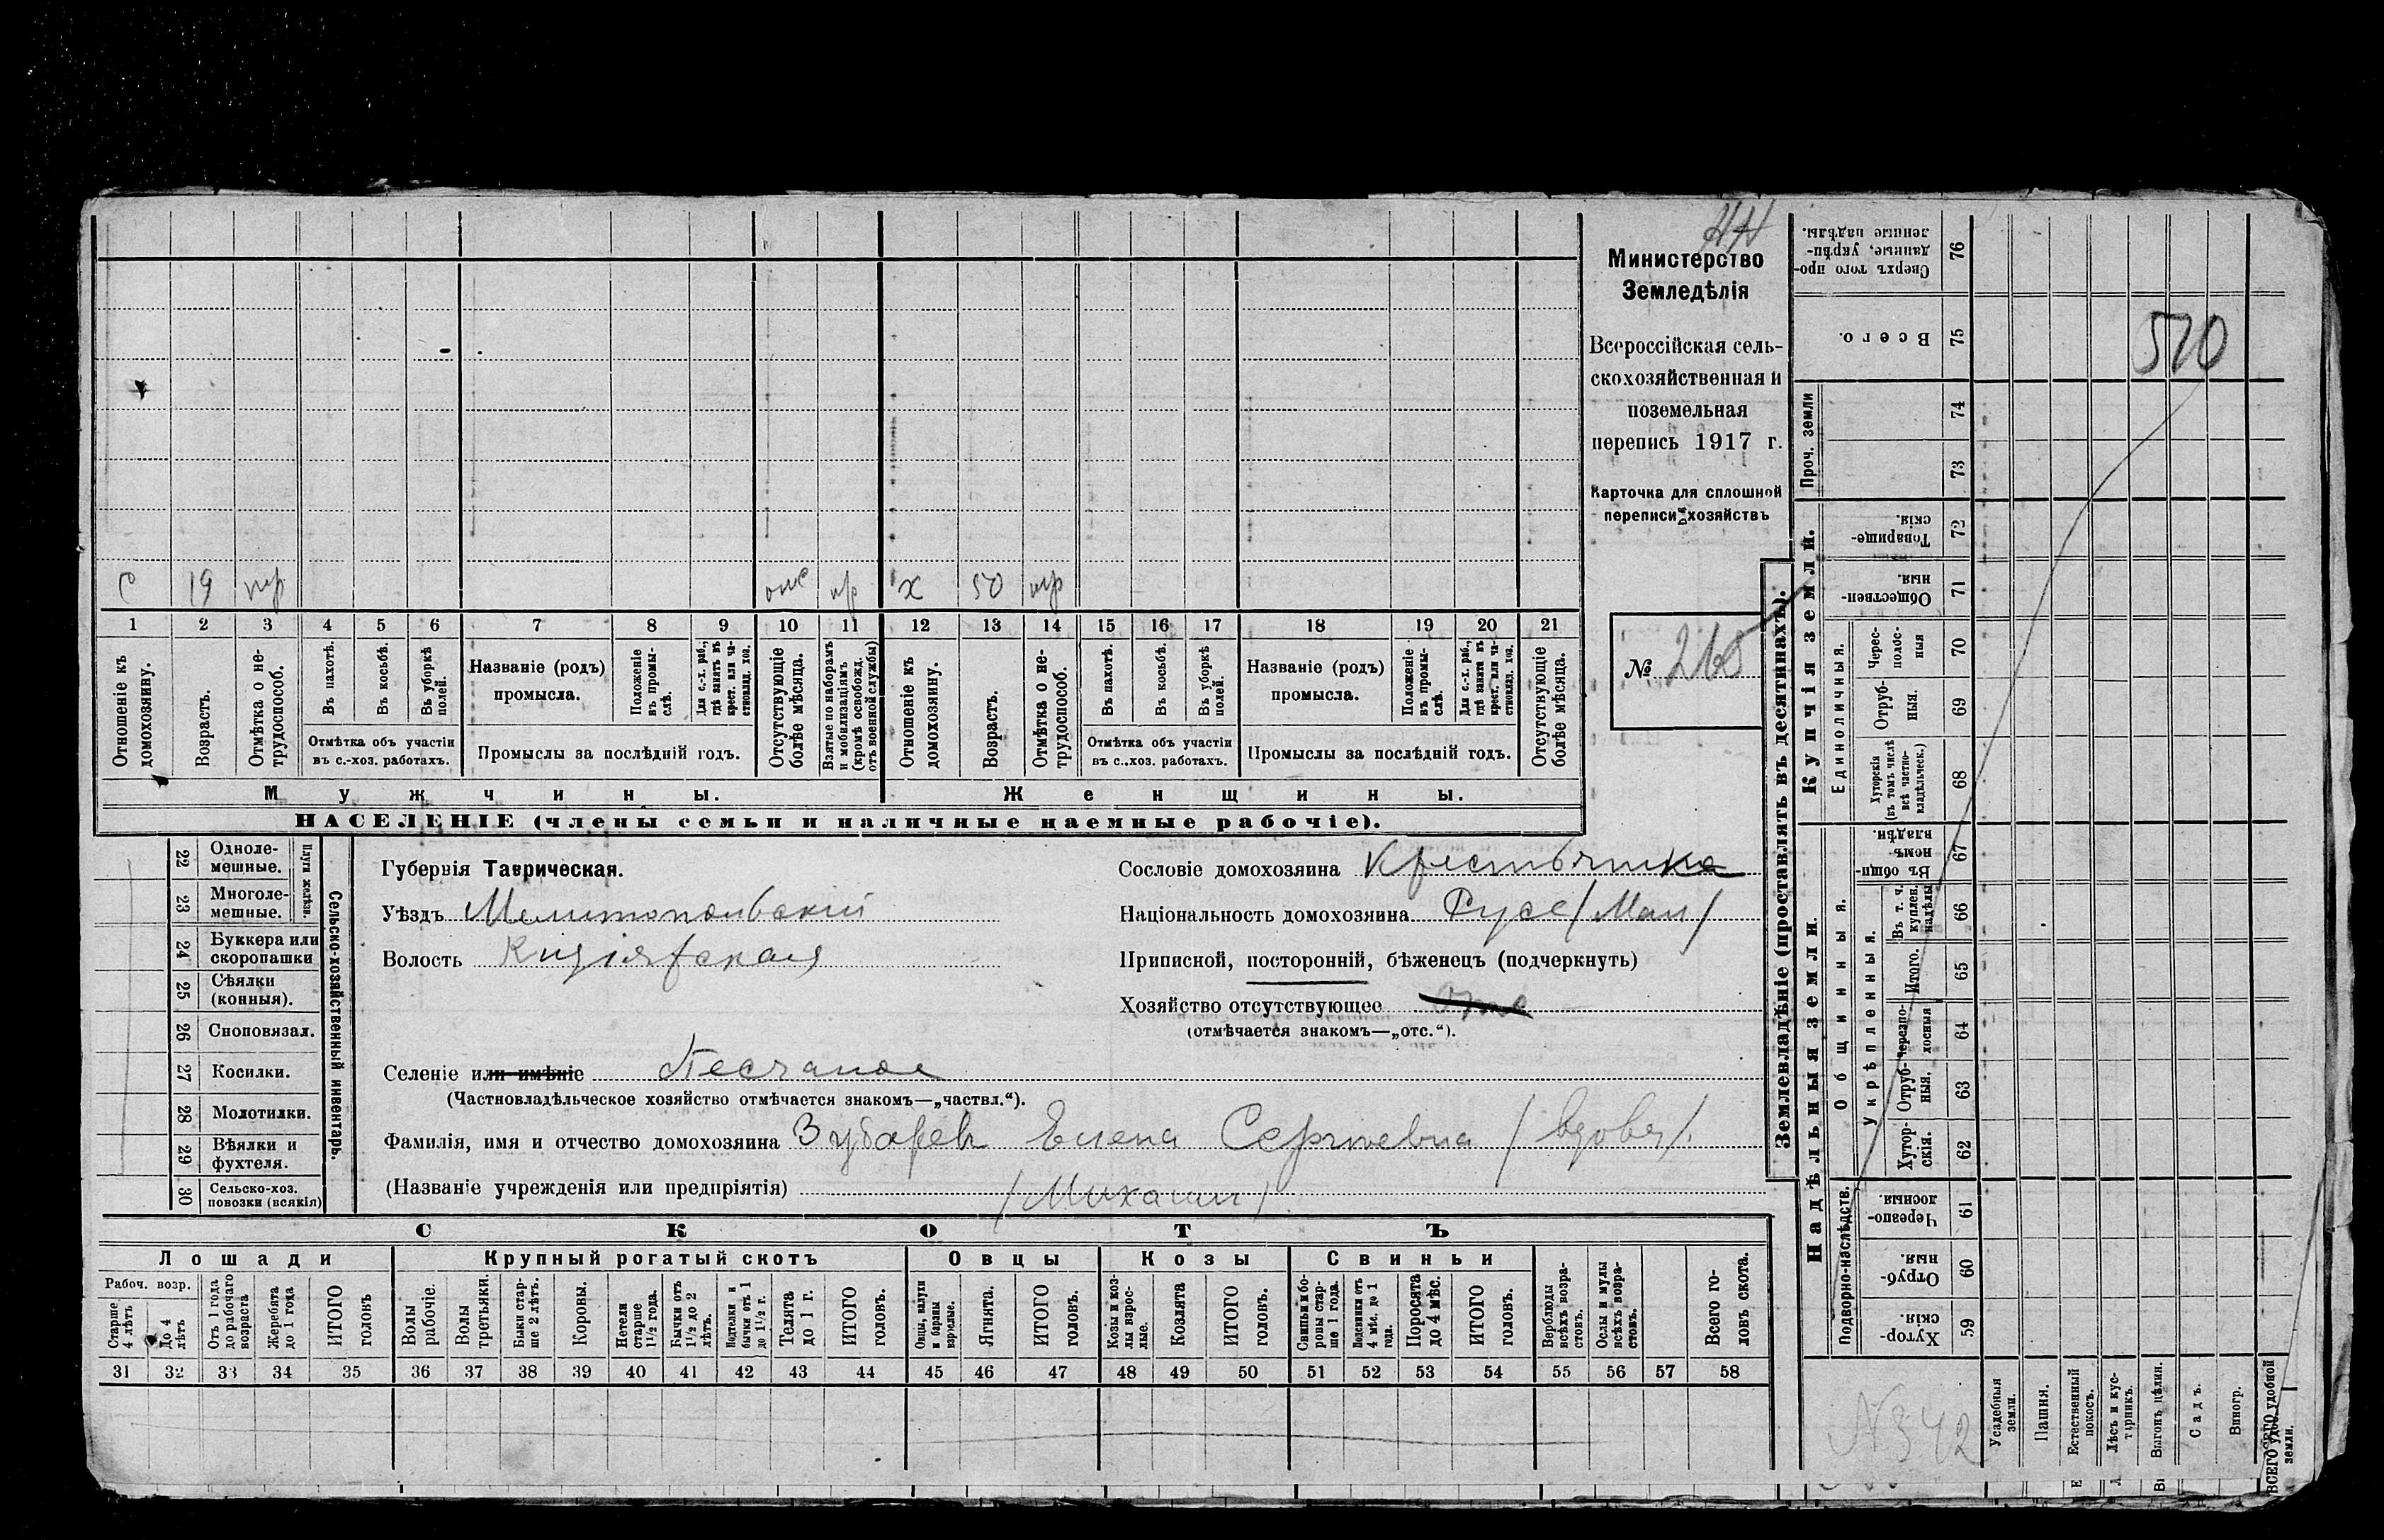 НН
Министерство
Земледѣлія
Всероссійская сель-
скохозяйственная и
поземельная
перепись 1917 г.
Карточка для сплошной
переписи хозяйствъ
№ 265
С 19 нр отс нр х 50 нр
1 2 3 4 5 6 7 8 9 10 11 12 13 14 15 16 17 18 19 20 21
Отношеніе къ домохозяину.
Возрастъ.
Отмѣтка о не-трудоспособ.
Въ пахотѣ.
Въ косьбѣ.
Въ уборкѣ полей.
Отмѣтка объ участіи
въ с.-хоз. работахъ.
Названіе (родъ)
промысла.
Положеніе въ промы-слѣ.
Для с.-х. раб., гдѣ занятъ въ крест. или ча-стновлад. хоз.
Промыслы за послѣдній годъ.
Отсутствующіе болѣе мѣсяца.
Взятые по наборамъ и мобилизаціямъ (кромѣ освобожд. отъ военной службы)
Отношеніе къ домохозяину.
Возрастъ.
Отмѣтка о не-трудоспособ.
Въ пахотѣ.
Въ косьбѣ.
Въ уборкѣ полей.
Отмѣтка объ участіи
въ с.-хоз. работахъ.
Названіе (родъ)
промысла.
Положеніе въ промы-слѣ.
Для с.-х. раб., гдѣ занятъ въ крест. или ча-стновлад. хоз.
Промыслы за послѣдній годъ.
Отсутствующіе болѣе мѣсяца.
Мужчины. Женщины.
НАСЕЛЕНІЕ (члены семьи и наличные наемные рабочіе).
Сельско-хозяйственный инвентарь.
Плуги желѣзн.
22 Одноле-мешные.
23 Многоле-мешные.
24 Буккера или скоропашки
25 Сѣялки (конныя).
26 Сноповязал.
27 Косилки.
28 Молотилки.
29 Вѣялки и фухтеля.
30 Сельско-хоз. повозки (всякія)
Губернія Таврическая.
Уѣздъ Мелитопольскій
Волость Кизіярская
Сословіе домохозяина Крестьянка
Національность домохозяина Русс/Мал/
Приписной, посторонній, бѣженецъ (подчеркнуть)
Хозяйство отсутствующее отс
(отмѣчается знакомъ—„отс.“).
Селеніе или имѣніе Песчаное
(Частновладѣльческое хозяйство отмѣчается знакомъ—„частвл.“).
Фамилія, имя и отчество домохозяина Зубаревъ Елена Сергѣевна /вдова/.
(Названіе учрежденія или предпріятія) /Михаилъ/
СКОТЪ
Лошади Крупный рогатый скотъ Овцы Козы Свиньи
Рабоч. возр.
Старше 4 лѣтъ
До 4 лѣтъ
Отъ 1 года до рабочаго возраста
Жеребята до 1 года
ИТОГО головъ
Волы рабочіе.
Волы третьяки.
Быки стар-ше 2 лѣтъ.
Коровы.
Нетели старше 1½ года.
Бычки отъ 1½ до 2 лѣтъ.
Подтелки и бычки отъ 1 до 1½ г.
Телята до 1 г.
ИТОГО головъ.
Овцы, валухи и бараны взрослые.
Ягнята.
ИТОГО головъ.
Козы и коз-лы взрос-лые.
Козлята
ИТОГО головъ.
Свиньи и бо-ровы стар-ше 1 года.
Подсвинки отъ 4 мѣс. до 1 года.
Поросята до 4 мѣс.
ИТОГО головъ.
Верблюды всѣхъ возра-стовъ.
Ослы и мулы всѣхъ возра-стовъ.
Всего го-ловъ скота.
31 32 33 34 35 36 37 38 39 40 41 42 43 44 45 46 47 48 49 50 51 52 53 54 55 56 57 58
Землевладѣніе (проставлять въ десятинахъ).
Сверхъ того про-данные, укрѣп-ленные надѣлы. 76
Всего. 75
510
Проч. земли
74
73
Купчія земли.
Товарище-скія. 72
Обществен-ныя. 71
Единоличныя.
Черес-полос-ныя 70
Отруб-ныя. 69
Хуторскія (въ томъ числѣ всѣ частно-владѣльческ.) 68
Надѣльныя земли.
Общинныя.
Въ общин-номъ владѣн. 67
Укрѣпленныя.
Въ т. ч. куплен. надѣлы 66
Итого. 65
Черезпо-лосныя 64
Отруб-ныя. 63
Хутор-скія. 62
Подворно-наслѣдств.
Черезпо-лосныя. 61
Отруб-ныя. 60
Хутор-скія. 59
№342
Усадебныя земли.
Пашня.
Естественный покосъ.
Лѣсъ и кус-тарникъ.
Выгонъ цѣлин.
Садъ.
Виногр.
ВСЕГО удобной земли.